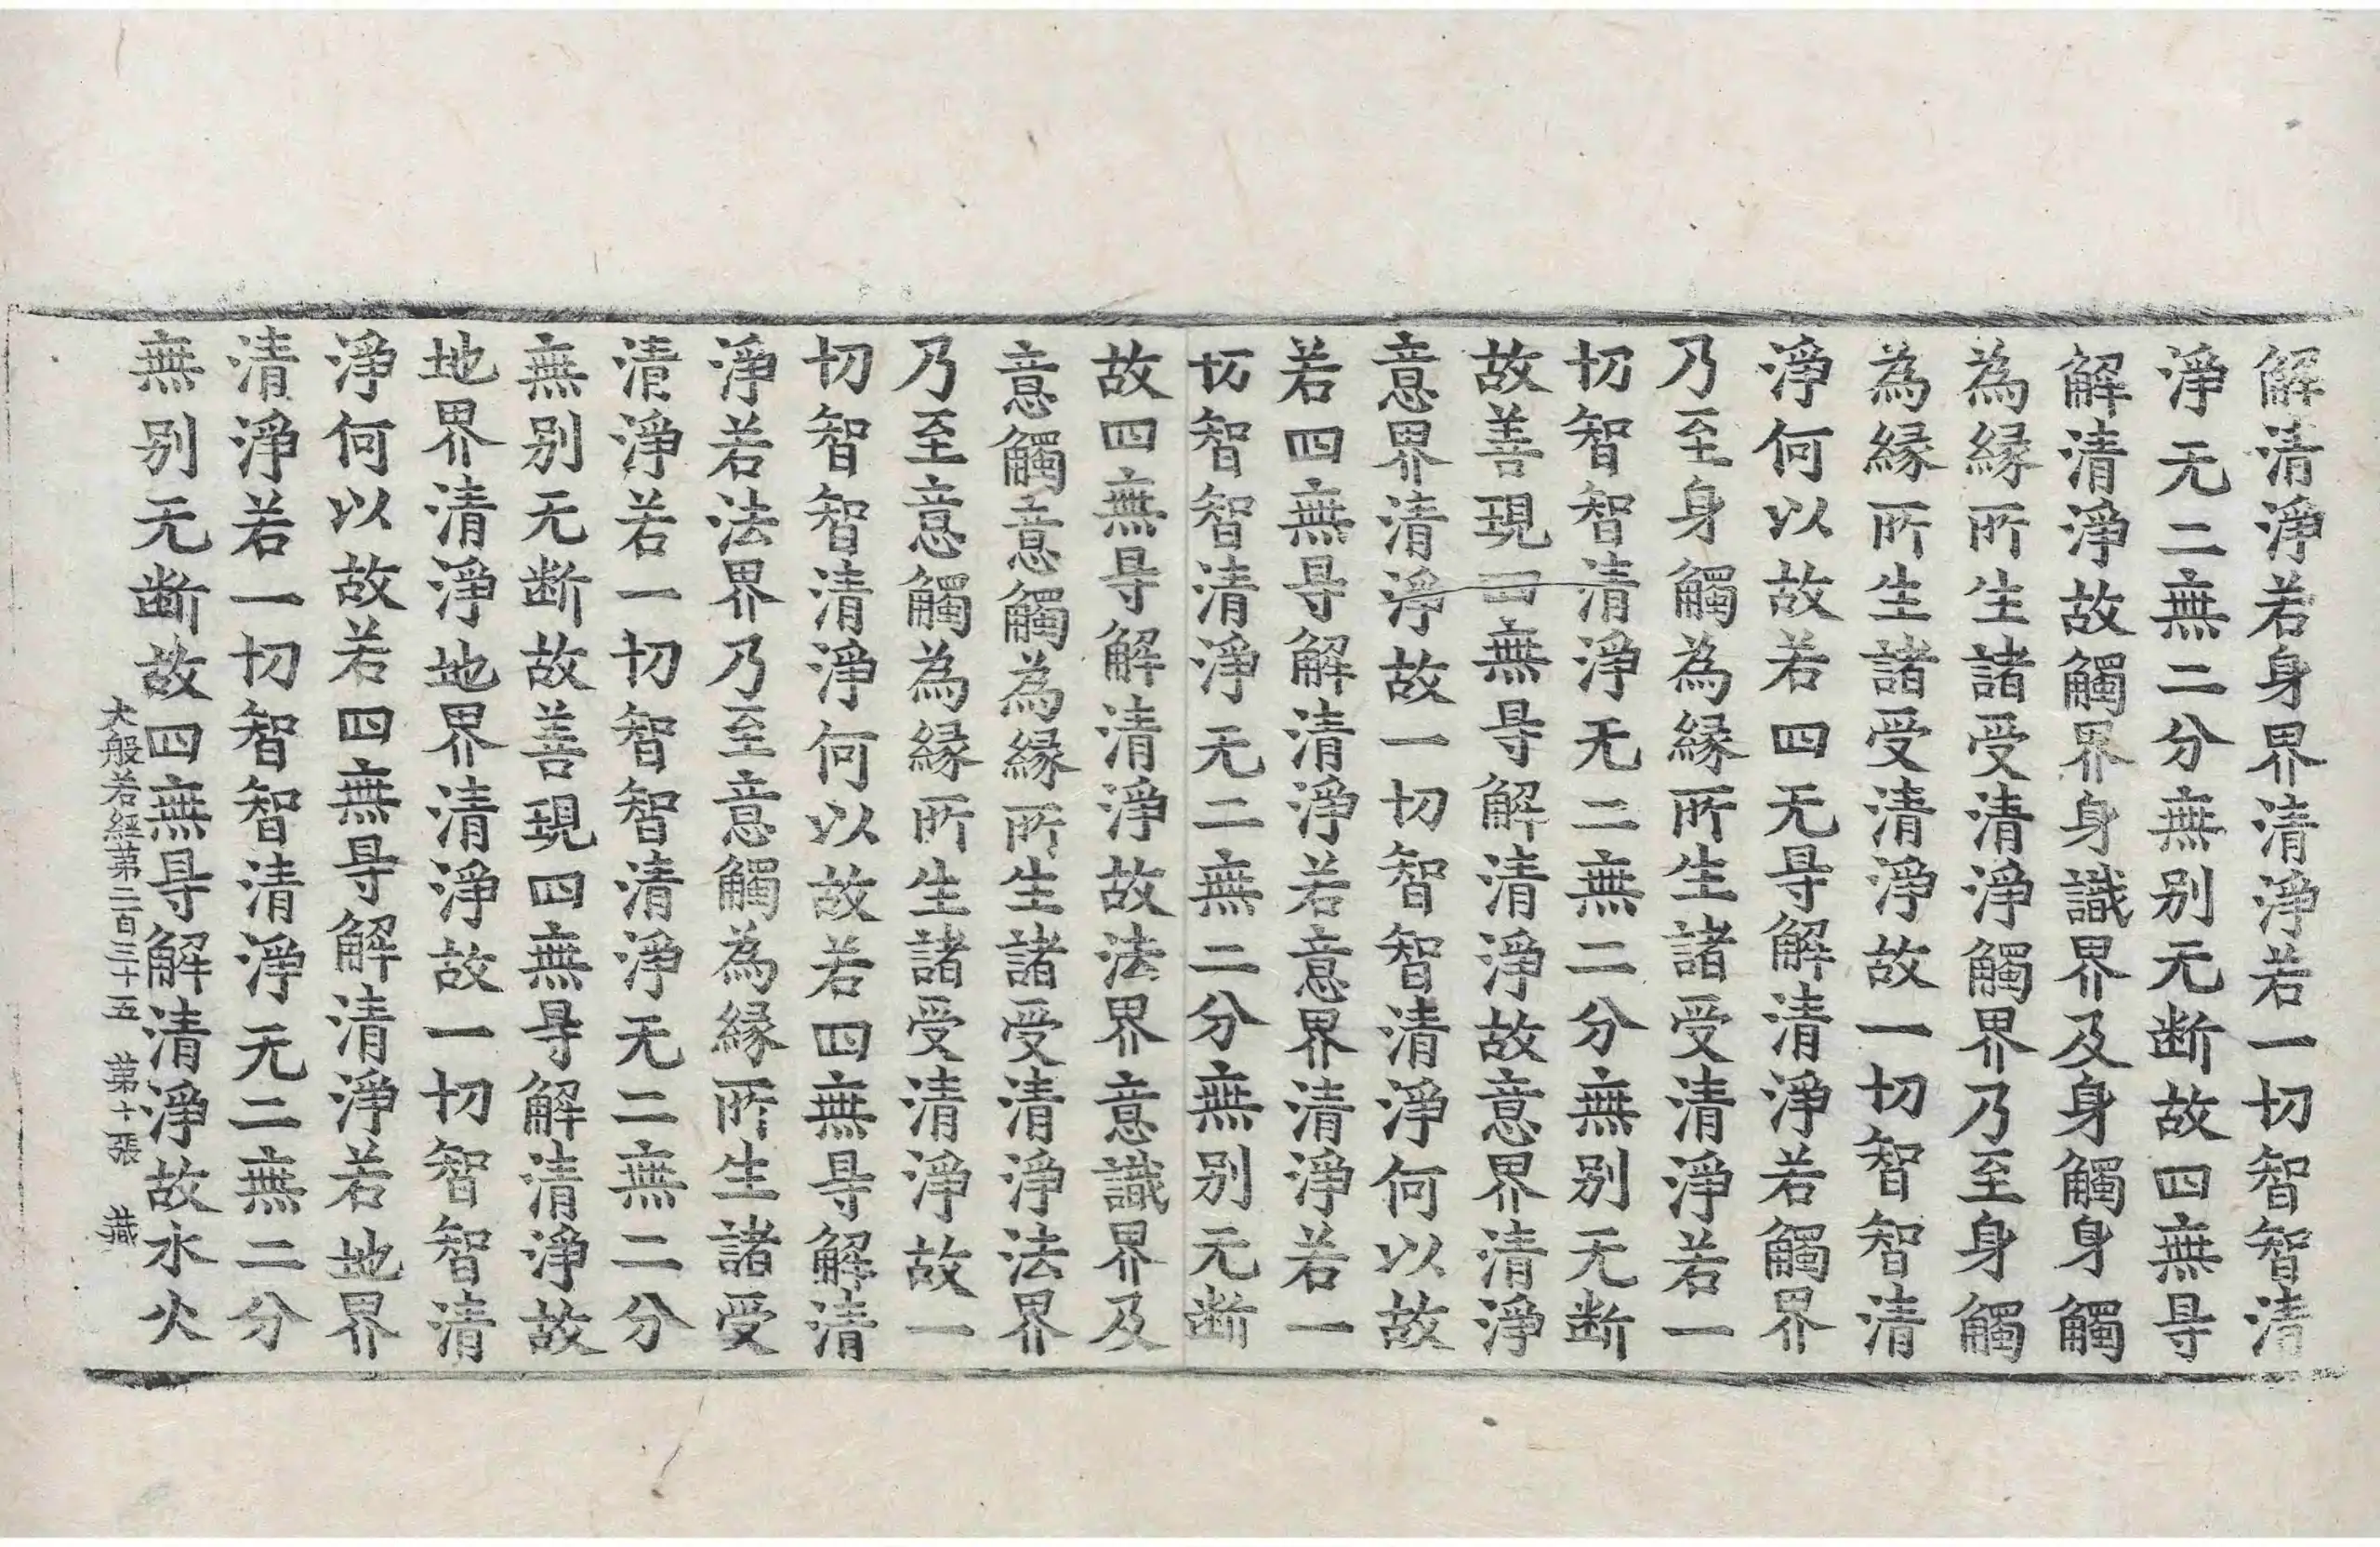 解清淨若身界清淨若一切智智清
淨无二無二分無别无断故四無㝵
解清淨故觸界身識界及身觸身觸
為縁所生諸受清淨觸界乃至身觸
為縁所生諸受清淨故一切智智清
淨何以故若四无㝵解清淨若觸界
乃至身觸為縁所生諸受清淨若一
切智智清淨无二無二分無别无断
故善現四無㝵解清淨故意界清淨
意界清淨故一切智智清淨何以故
若四無㝵解清淨若意界清淨若一
切智智清淨无二無二分無别无断
故四無㝵解清淨故法界意識界及
意觸意觸為縁所生諸受清淨法界
乃至意觸為縁所生諸受清淨故一
切智智清淨何以故若四無㝵解清
淨若法界乃至意觸為縁所生諸受
清淨若一切智智清淨无二無二分
無别无断故善現四無㝵解清淨故
地界清淨地界清淨故一切智智清
淨何以故若四無㝵解清淨若地界
清淨若一切智智清淨无二無二分
無别无断故四無㝵解清淨故水火
大般若経苐二百三十五 苐十張